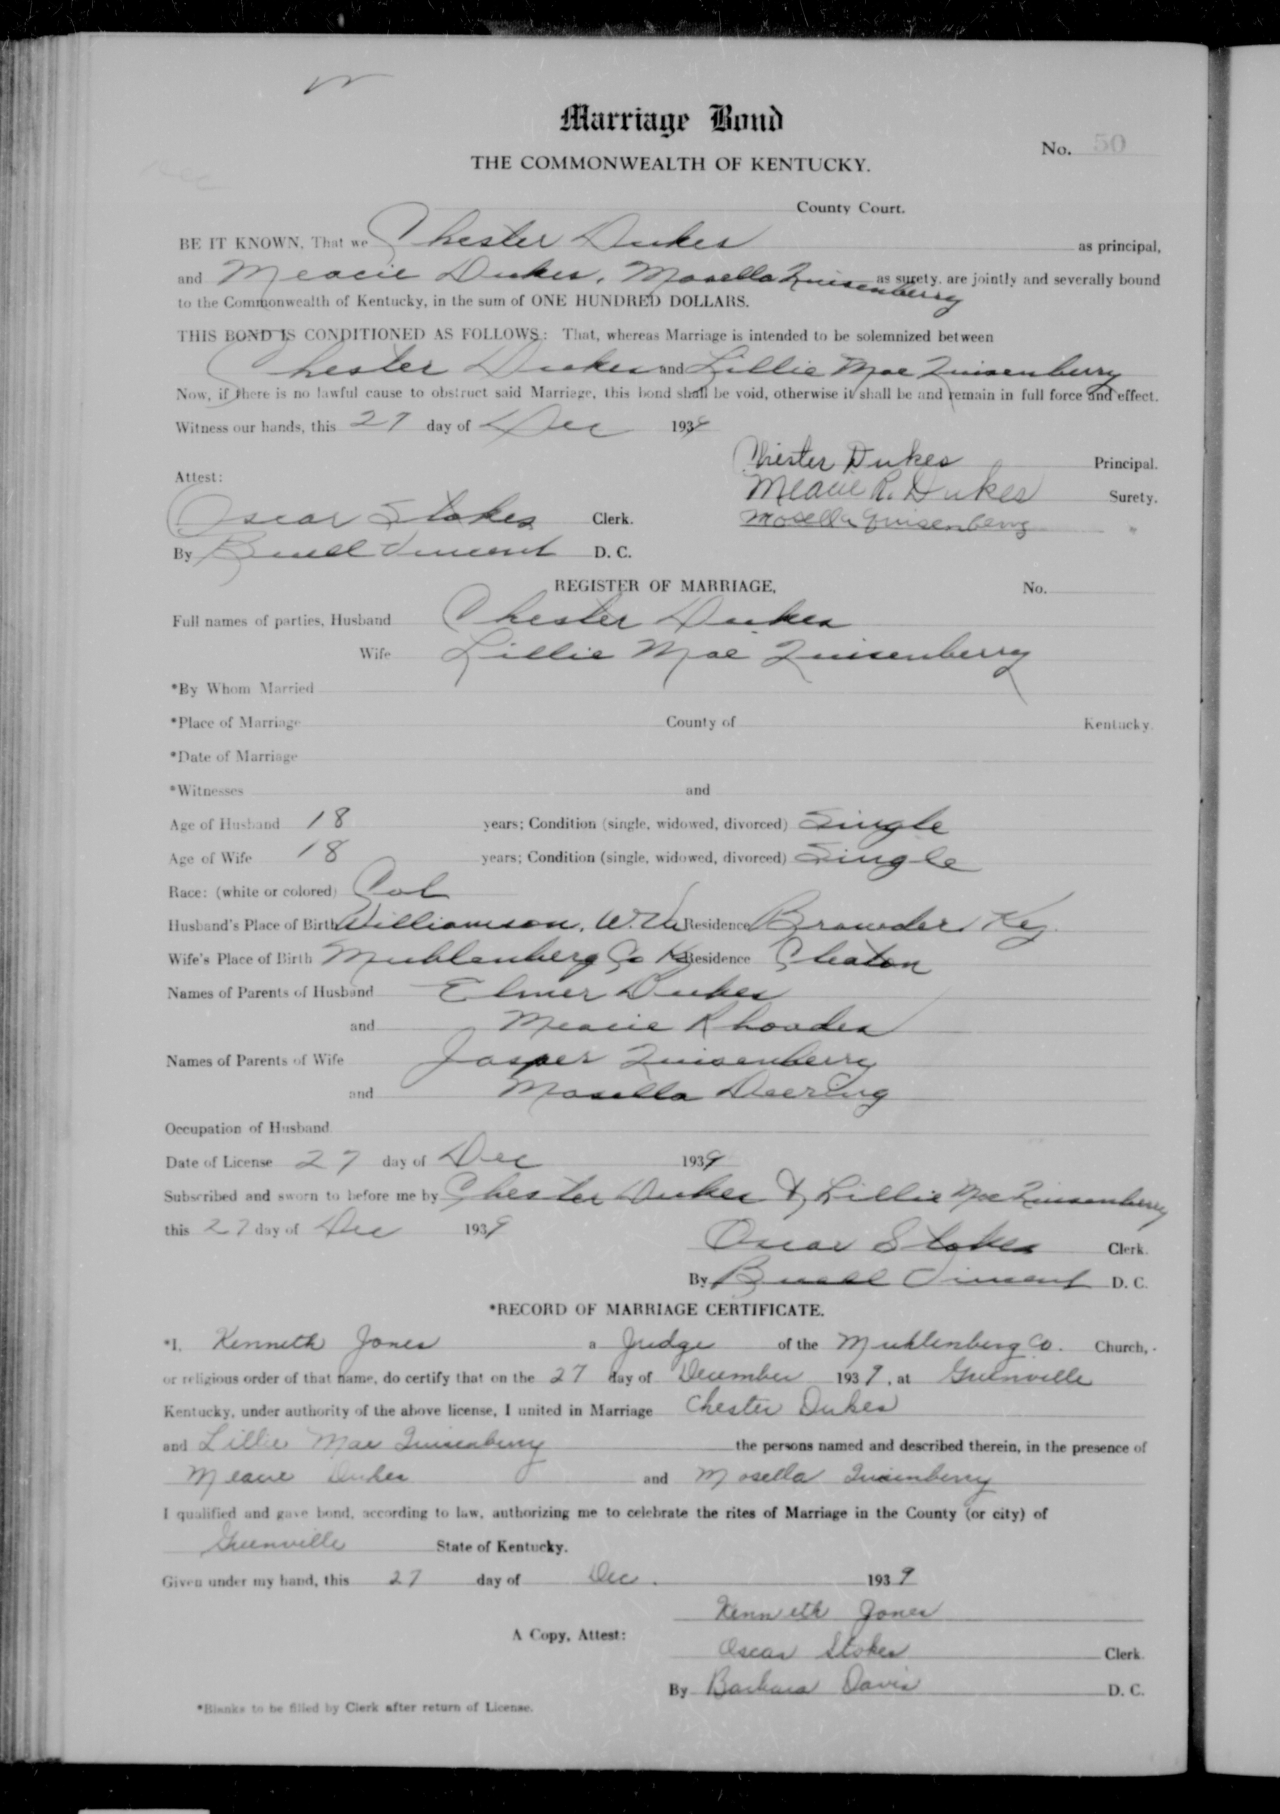 Marriage Bond
No. 50
THE COMMONWEALTH OF KENTUCKY.
County Court.
BE IT KNOWN, That we Chester Dukes as principal,
and Meacie Dukes, Mosella Quisenberry as surety, are jointly and severally bound
to the Commonwealth of Kentucky, in the sum of ONE HUNDRED DOLLARS.
THIS BOND IS CONDITIONED AS FOLLOWS: That, whereas Marriage is intended to be solemnized between
Chester Dukes and Lillie Mae Quisenberry
Now, if there is no lawful cause to obstruct said Marriage, this bond shall be void, otherwise it shall be and remain in full force and effect.
Witness our hands, this 27 day of Dec 1939
Chester Dukes Principal.
Attest:
Meacie R. Dukes Surety.
Oscar Stokes Clerk.
Mosella Quisenberry "
By Buell Vincent D. C.
REGISTER OF MARRIAGE, No.
Full names of parties, Husband Chester Dukes
Wife Lillie Mae Quisenberry
*By Whom Married
*Place of Marriage County of Kentucky.
*Date of Marriage
*Witnesses and
Age of Husband 18 years; Condition (single, widowed, divorced) Single
Age of Wife 18 years; Condition (single, widowed, divorced) Single
Race: (white or colored) Col
Husband's Place of Birth Williamson, W. Va Residence Browder, Ky.
Wife's Place of Birth Muhlenberg Co Ky Residence Cleaton
Names of Parents of Husband Elmer Dukes
and Meacie Rhoades
Names of Parents of Wife Jasper Quisenberry
and Mosella Deering
Occupation of Husband
Date of License 27 day of Dec 1939
Subscribed and sworn to before me by Chester Dukes & Lillie Mae Quisenberry
this 27 day of Dec 1939
Oscar Stokes Clerk.
By Buell Vincent D. C.
*RECORD OF MARRIAGE CERTIFICATE.
*I, Kenneth Jones a Judge of the Muhlenberg Co. Church,
or religious order of that name, do certify that on the 27 day of December 1939, at Greenville
Kentucky, under authority of the above license, I united in Marriage Chester Dukes
and Lillie Mae Quisenberry the persons named and described therein, in the presence of
Meacie Dukes and Mosella Quisenberry
I qualified and gave bond, according to law, authorizing me to celebrate the rites of Marriage in the County (or city) of
Greenville State of Kentucky.
Given under my hand, this 27 day of Dec. 1939
Kenneth Jones
A Copy, Attest:
Oscar Stokes Clerk
By Barbara Davis D. C.
*Blanks to be filled by Clerk after return of License.